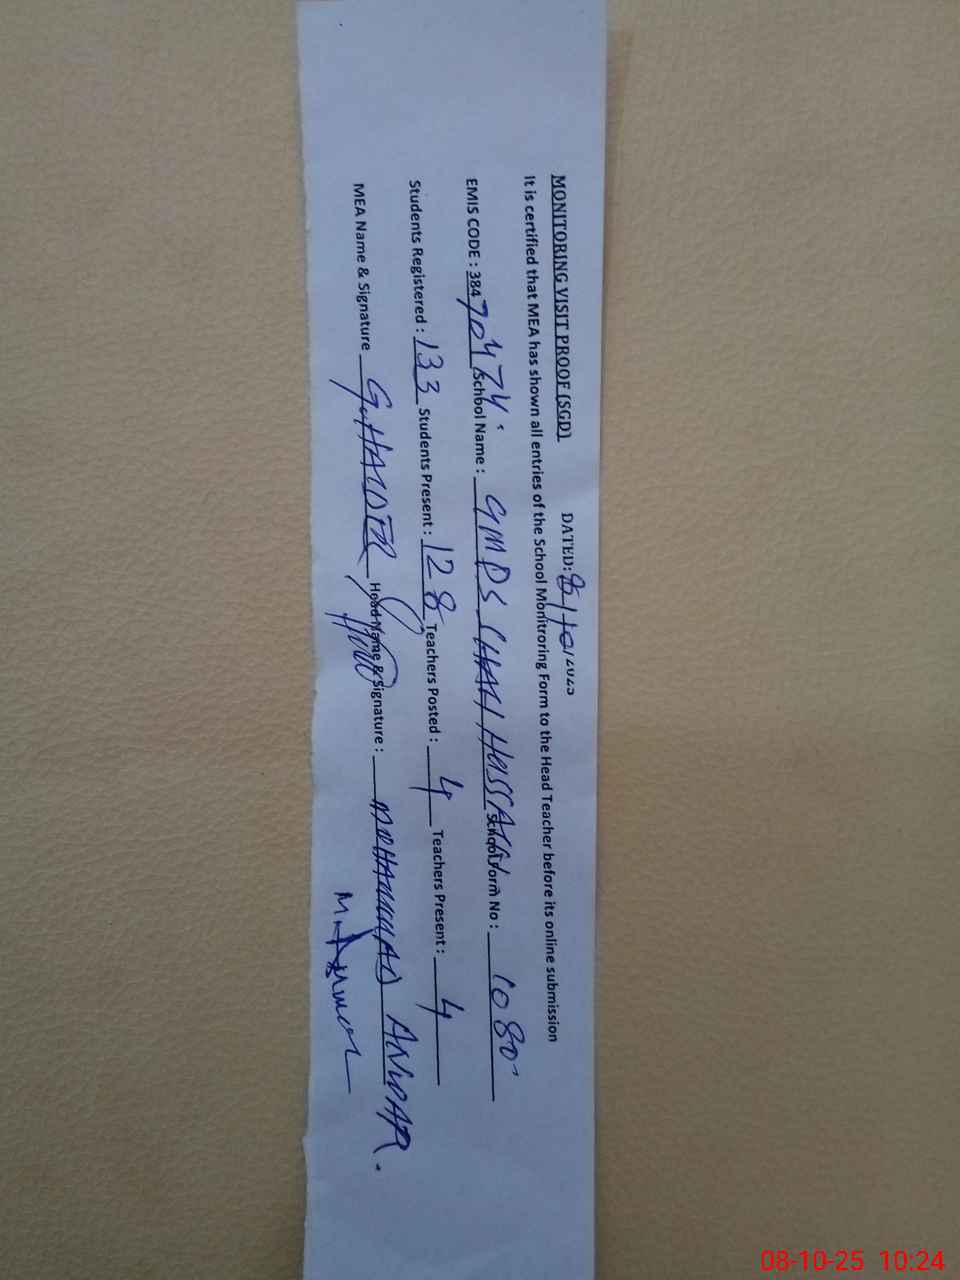 MONITORING VISIT PROOF (SGD) DATED: 8/10/2025
It is certified that MEA has shown all entries of the School Monitroring Form to the Head Teacher before its online submission
EMIS CODE : 38470474 School Name : GMPS CHAH HUSSAIN School Form No : 1080
Students Registered : 133 Students Present : 128 Teachers Posted : 4 Teachers Present : 4
MEA Name & Signature G. HAIDER Head Name & Signature : MUHAMMAD ANWAR.
M. Anwar
08-10-25 10:24